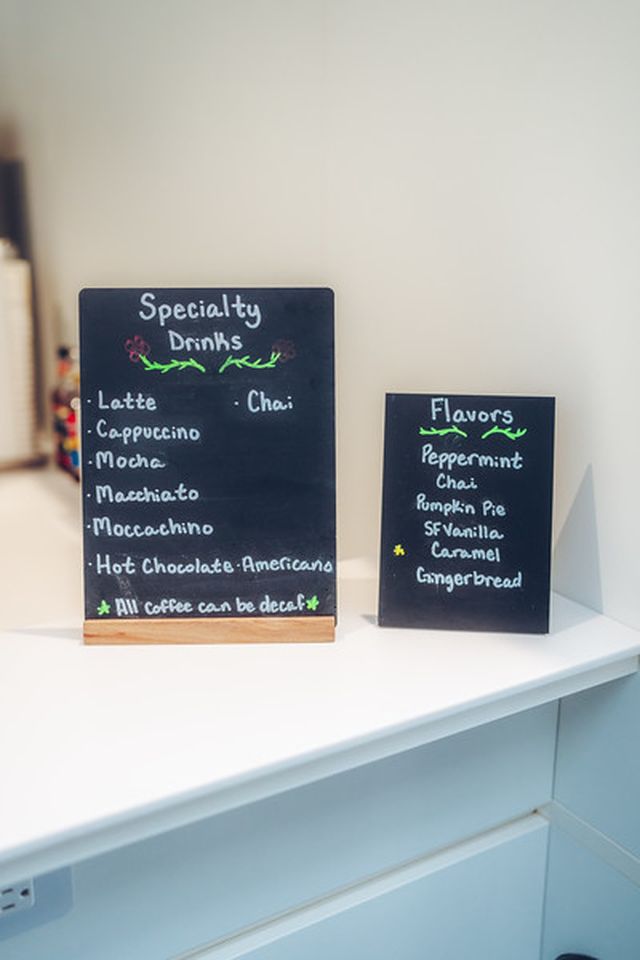 Specialty
Drinks
· Latte · Chai
· Cappuccino
· Mocha
· Macchiato
· Moccachino
· Hot Chocolate · Americano
All coffee can be decaf
Flavors
Peppermint
Chai
Pumpkin Pie
SF Vanilla
Caramel
Gingerbread